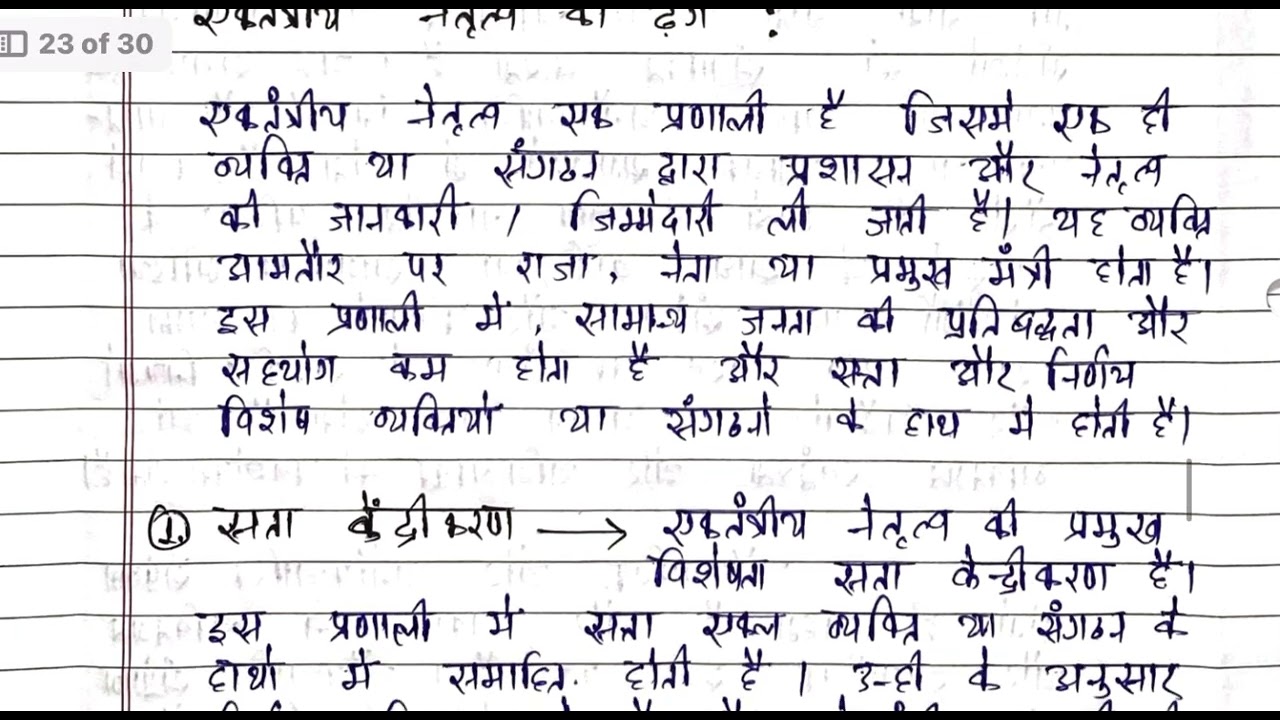 23 of 30
एकतंत्रीय नेतृत्व का ढ़ंग :
एकतंत्रीय नेतृत्व एक प्रणाली है जिसमे एक ही
व्यक्ति या संगठन द्वारा प्रशासन और नेतृत्व
की जानकारी / जिम्मेदारी ली जाती है। यह व्यक्ति
आमतौर पर राजा, नेता या प्रमुख मंत्री होता है।
इस प्रणाली में, सामान्य जनता की प्रतिबद्धता और
सहयोग कम होता है और सत्ता और निर्णय
विशेष व्यक्तियों या संगठनो के हाथ मे होती है।
1. सत्ता केंद्रीकरण → एकतंत्रीय नेतृत्व की प्रमुख
विशेषता सत्ता केन्द्रीकरण है।
इस प्रणाली मे सत्ता एकल व्यक्ति या संगठन के
हाथो मे समाहित होती है । उन्ही के अनुसार